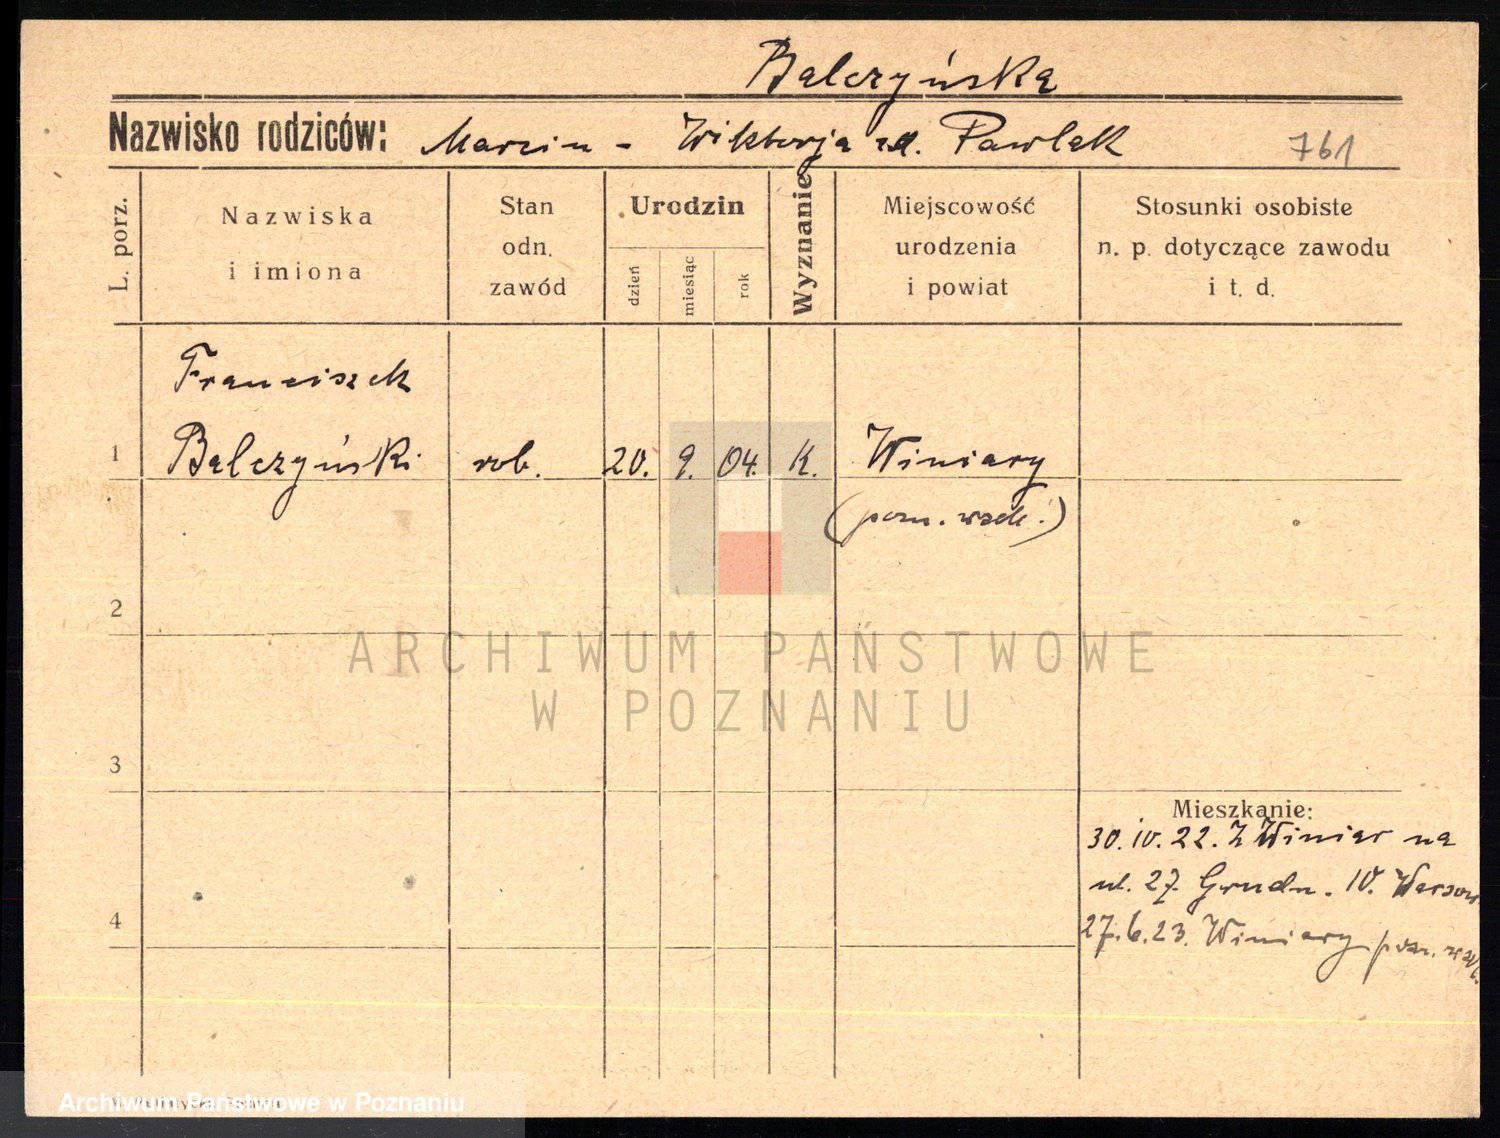 Balczyńska
Nazwisko rodziców: Marcin - Wiktorja zd. Pawlak 761
L. porz.
Nazwiska
i imiona
Stan
odn.
zawód
Urodzin
dzień
miesiąc
rok
Wyznanie
Miejscowość
urodzenia
i powiat
Stosunki osobiste
n. p. dotyczące zawodu
i t. d.
Franciszek
1 Balczyński rob. 20. 9. 04. K. Winiary
(pozn. wsch.)
2
ARCHIWUM PAŃSTWOWE
W POZNANIU
3
Mieszkanie:
30. IV. 22. Z Winiar na
ul. 27. Grudn. 10.
4
27.6.23. Winiary pozn.
Archiwum Państwowe w Poznaniu